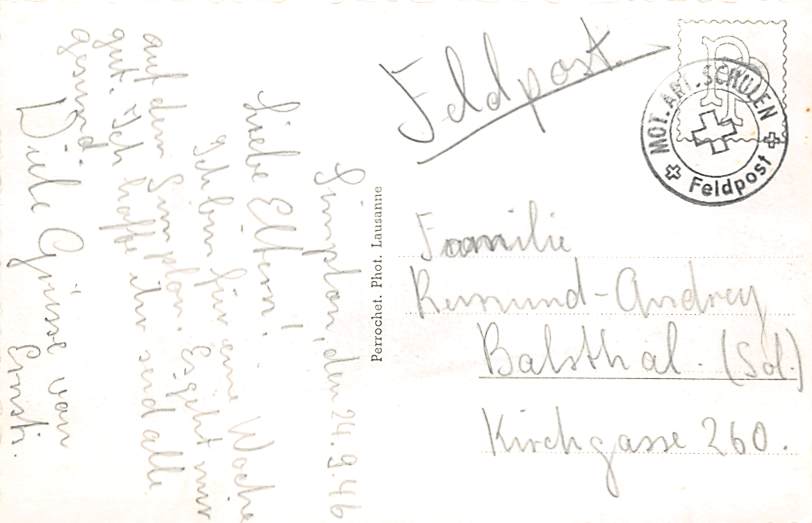 Simplon, den 24.9.46
Liebe Eltern!
Ich bin für eine Woche
auf dem Simplon. Es geht mir
gut. Ich hoffe ihr seid alle
gesund.
Viele Grüsse von
Ernst.
Perrochet. Phot. Lausanne
Feldpost
MOT. ART. SCHULEN
Feldpost
Familie
Remund-Andrey
Balsthal. (Sol.)
Kirchgasse 260.